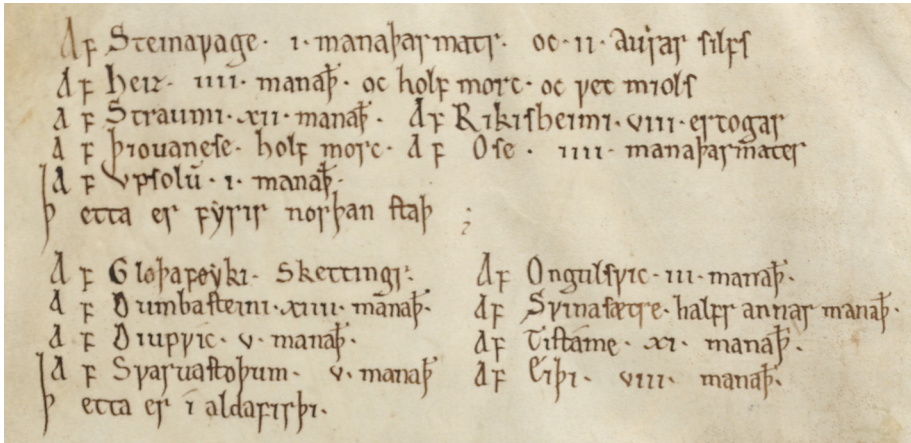 Aꝼ Steinaꝩage · i · manaþarmatr · oc · ii · aurar silꝼs
Aꝼ Heiz · iiii · manaþ̄ · oc holꝼ morc · oc ꝩet miols
Aꝼ Straumi · xii · manaþ̄ · Aꝼ Rikisheimi · viii · ertogar
Aꝼ Þiouanese · holꝼ morc · Aꝼ Ose · iiii · manaþarmater
Aꝼ Vpsolū · i · manaþ̄ ·
Þetta er ꝼẏrir norþan staþ
Aꝼ Gloþaꝼøẏki · Skettingr ·
Aꝼ Dumbasteini · xiiii · manaþ̄ ·
Aꝼ Diupꝩic · v · manaþ̄ ·
Aꝼ Sꝩaruastoþum · v · manaþ̄
Þetta er i aldaꝼirþi ·
Aꝼ Ongulsꝩic · iii · manaþ̄ ·
Aꝼ Sꝩinasætre · halꝼr annar manaþ̄ ·
Aꝼ Tistāme · xi · manaþ̄ ·
Aꝼ Liþi · viii · manaþ̄ ·